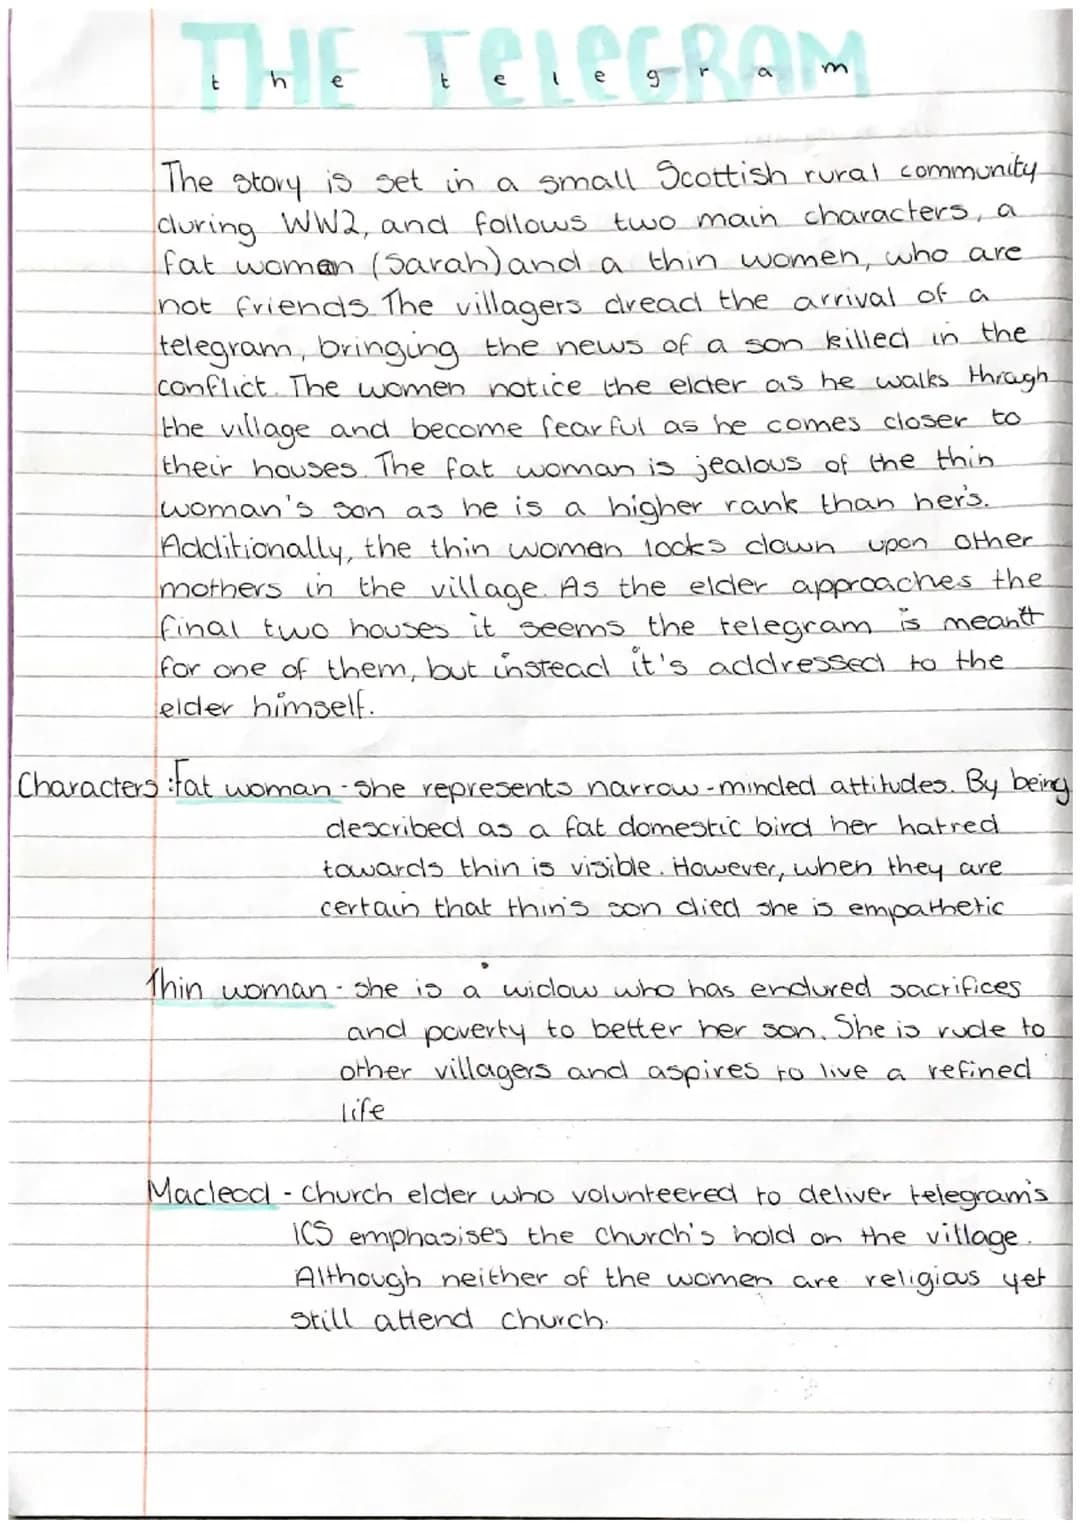 THE TELEGRAM
the telegram
The story is set in a small Scottish rural community
during WW2, and follows two main characters, a
fat woman (Sarah) and a thin women, who are
not friends. The villagers dread the arrival of a
telegram, bringing the news of a son killed in the
conflict. The women notice the elder as he walks thragh
the village and become fearful as he comes closer to
their houses. The fat woman is jealous of the thin
woman's son as he is a higher rank than her's.
Additionally, the thin women looks down upon other
mothers in the village. As the elder approaches the
final two houses it seems the telegram is meant
for one of them, but instead it's addressed to the
elder himself.
Characters: fat woman - she represents narrow-minded attitudes. By being
described as a fat domestic bird her hatred
towards thin is visible. However, when they are
certain that thin's son died she is empathetic
Thin woman - she is a widow who has endured sacrifices
and poverty to better her son. She is rude to
other villagers and aspires to live a refined
life
Macleod - Church elder who volunteered to deliver telegram's
ICS emphasises the church's hold on the village.
Although neither of the women are religious yet
still attend church.